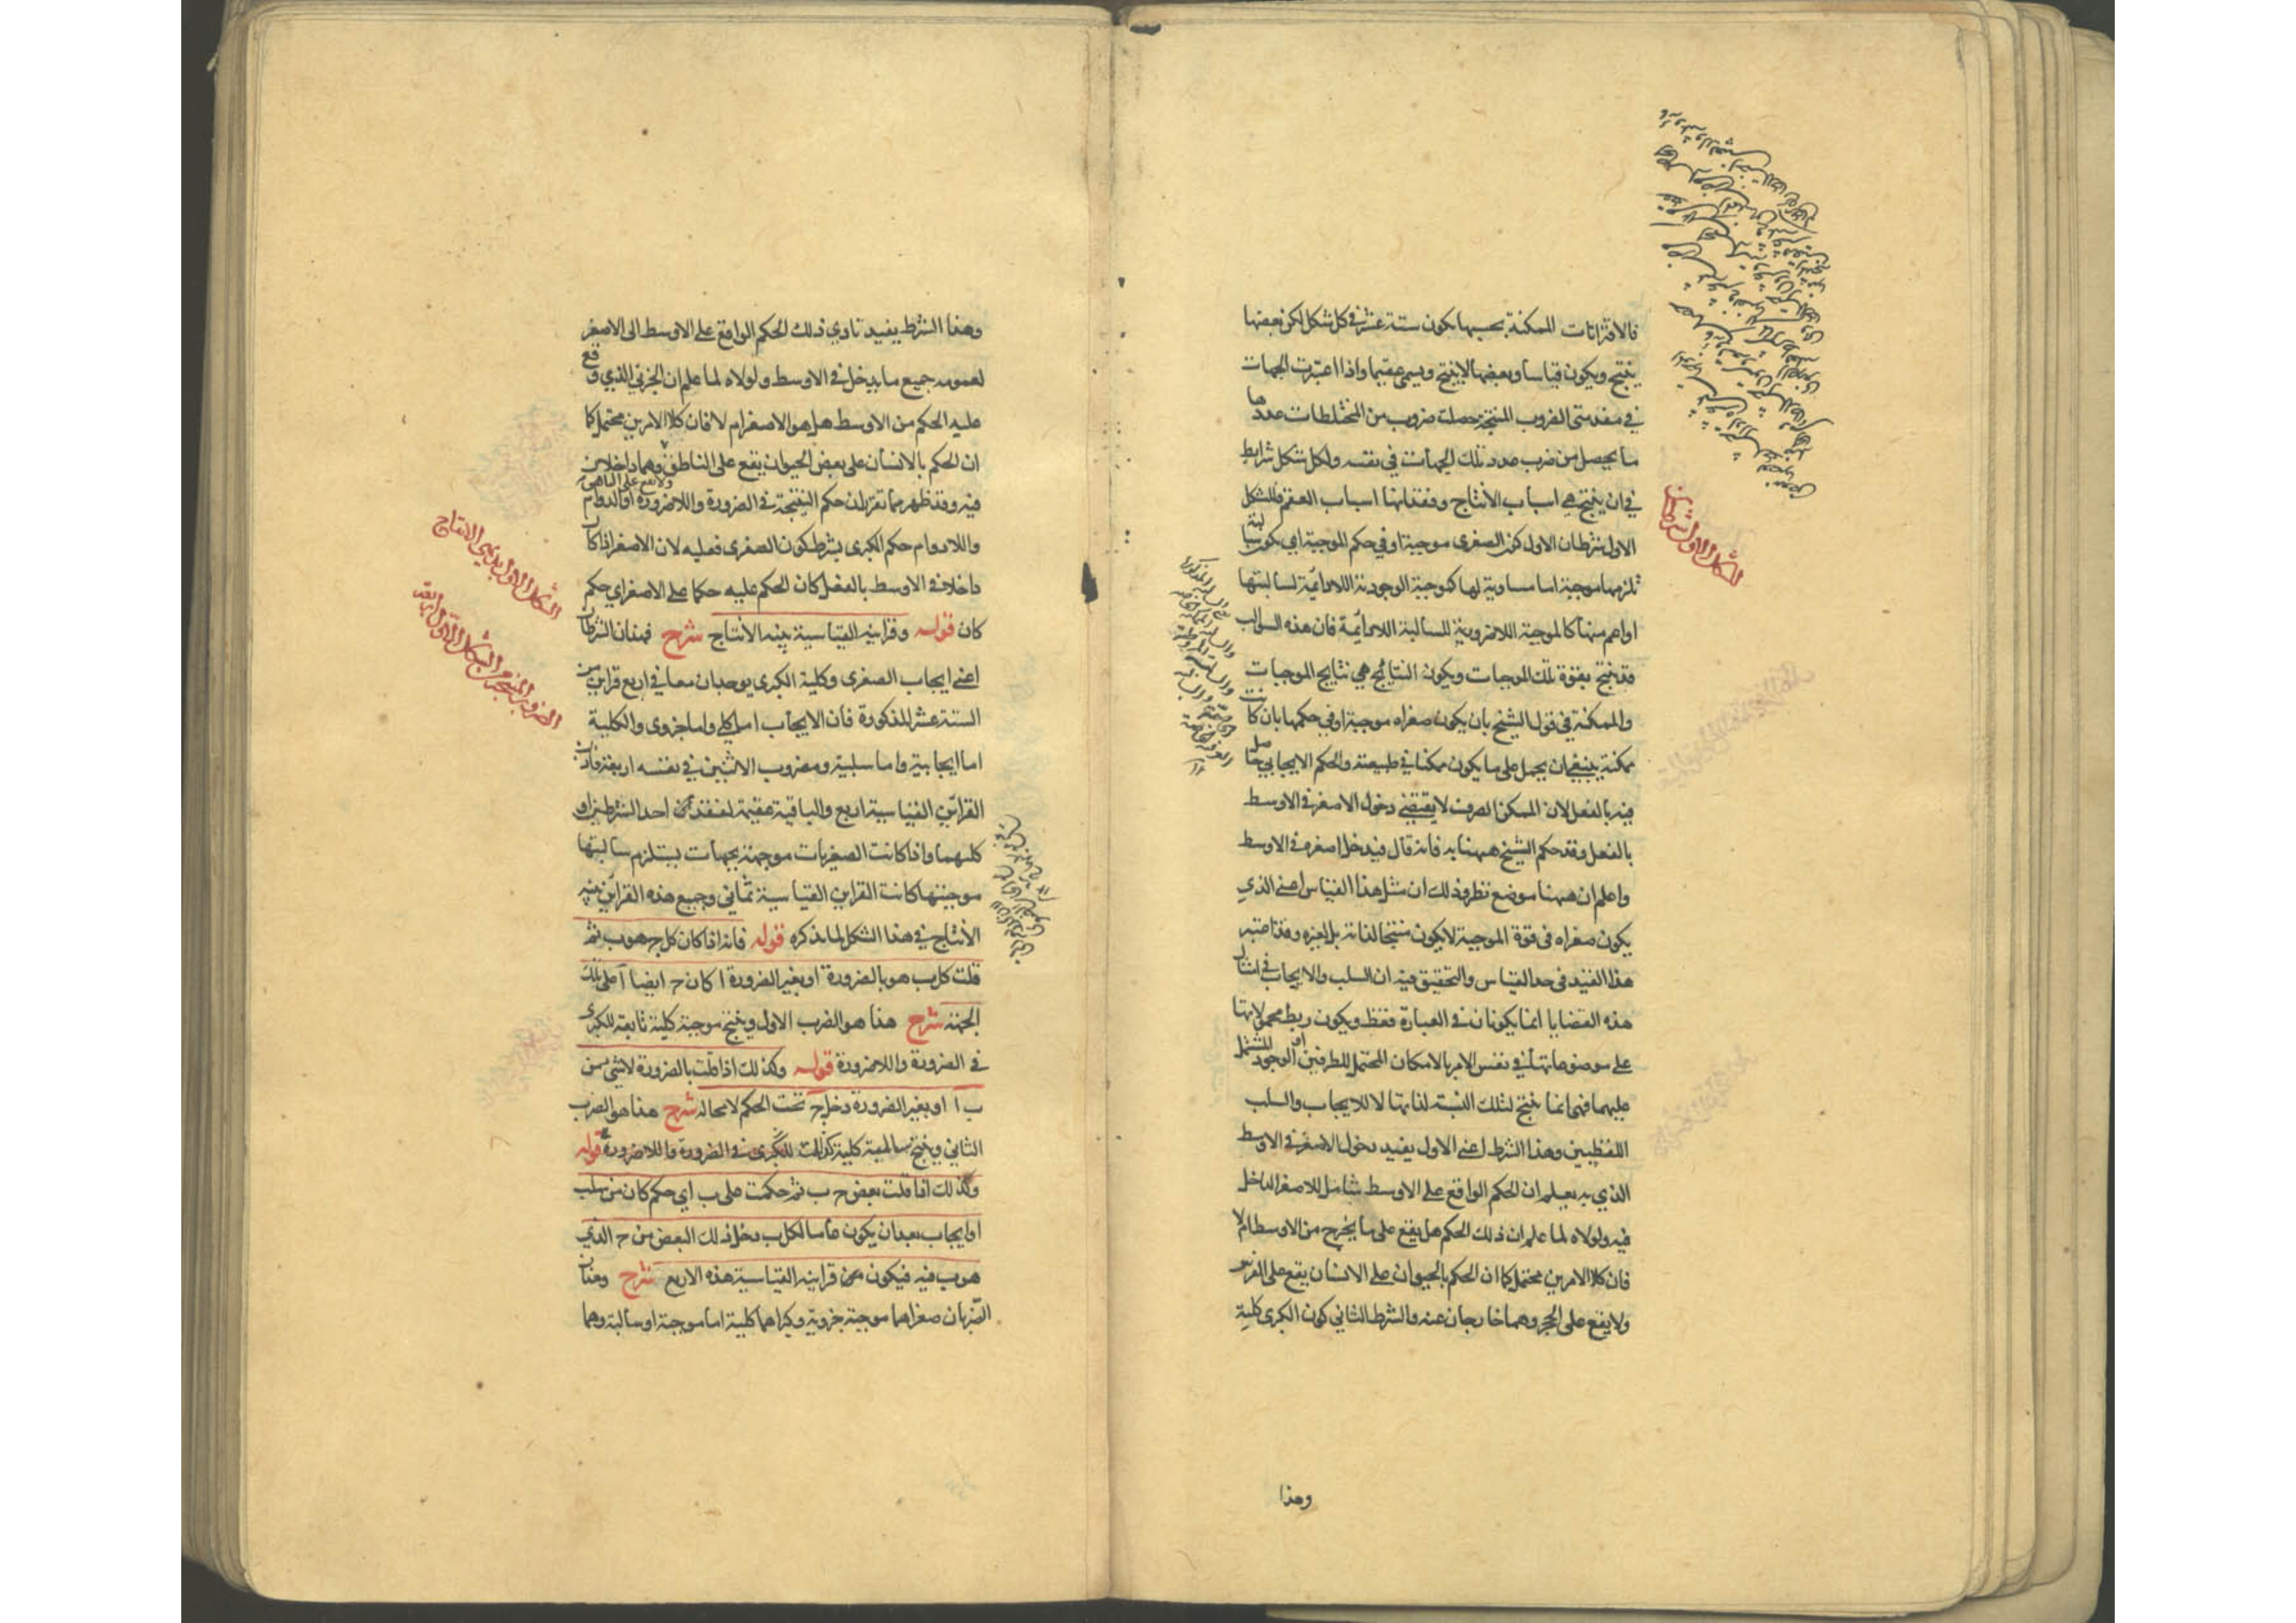 فالاقترانات الممكنة بحسبها يكون ستة عشر في كل شكل لكن بعضها
ينتج ويكون قياسا وبعضها لا ينتج ويسمى عقيما واذا اعتبرت الجهات
في مقدمتى الضروب المنتجة حصلت ضروب من المختلطات عددها
ما يحصل من ضرب عدد تلك الجهات في نفسه ولكل شكل شرايط
في ان ينتج هي اسباب الانتاج وفقدانها اسباب العقم فللشكل
الاول شرطان الاول كون الصغرى موجبة او في حكم الموجبة اي يكون سالبة
تلزمها موجبة اما مساوية لها كموجبة الوجودية اللادائمة لسالبتها
او اعم منها كالموجبة اللاضرورية للسالبة اللادائمة فان هذه السوالب
قد ينتج بقوة تلك الموجبات ويكون النتائج هي نتايج الموجبات
والممكنة في قول الشيخ بان يكون صغراه موجبة او في حكمها بان كانت
ممكنة ينبغي ان يحمل على ما يكون ممكنا في طبيعته والحكم الايجابي حاصل
فيه بالفعل لان الممكن الصرف لا يقتضي دخول الاصغر في الاوسط
بالفعل وقد حكم الشيخ ههنا به فانه قال فيدخل اصغره في الاوسط
واعلم ان ههنا موضع نظر وذلك ان مثل هذا القياس اعني الذي
يكون صغراه في قوة الموجبة لا يكون منتجا لذاته بل لغيره وقد اعتبر
هذا القيد في حد القياس والتحقيق فيه ان السلب والايجاب في امثال
هذه القضايا انما يكونان في العبارة فقط ويكون ربط محمولاتها
على موضوعاتها في نفس الامر بالامكان المحتمل للطرفين او الوجود المشتمل
عليهما فهي انما ينتج لتلك النسبة لذاتها لا للايجاب والسلب
اللفظيين وهذا الشرط اعني الاول يفيد دخول الاصغر في الاوسط
الذي به يعلم ان الحكم الواقع على الاوسط شامل للاصغر الداخل
فيه ولولاه لما علم ان ذلك الحكم هل يقع على ما يخرج من الاوسط ام لا
فان كلا الامرين محتمل كما ان الحكم بالحيوان على الانسان يقع على الفرس
ولا يقع على الحجر وهما خارجان عنه والشرط الثاني كون الكبرى كلية
وهذا
الشكل الاول شرطان
وهذا الشرط يفيد تادي ذلك الحكم الواقع على الاوسط الى الاصغر
لعمومه جميع ما يدخل في الاوسط ولولاه لما علم ان الجزئي الذي وقع
عليه الحكم من الاوسط هل هو الاصغر ام لا فان كلا الامرين محتمل كما
ان الحكم بالانسان على بعض الحيوان يقع على الناطق ولا يقع على الناهق وهما داخلان
فيه وقد ظهر مما تقرر ان حكم النتيجة في الضرورة واللاضرورة او الدوام
واللادوام حكم الكبرى بشرط كون الصغرى فعلية لان الاصغر اذا كان
داخلا في الاوسط بالفعل كان الحكم عليه حكما على الاصغر اي حكم
كان قوله وقراينه القياسية بينه الانتاج شرح فهذان الشرطان
اعني ايجاب الصغرى وكلية الكبرى يوجدان معا في اربع قراين من
الستة عشر المذكورة فان الايجاب اما كلي واما جزوى والكلية
اما ايجابية واما سلبية ومضروب الاثنين في نفسه اربعة فاذن
القراين القياسية اربع والباقية عقيمة لفقدان احد الشرطين او
كليهما واذا كانت الصغريات موجهة بجهات يستلزم سالبتها
موجبتها كانت القراين القياسية ثماني وجميع هذه القراين بينه
الانتاج في هذا الشكل لما يذكره قوله فانه اذا كان كل ج هو ب ثم
قلت كل ب هو بالضرورة او بغير الضرورة ا كان ج ايضا ا على تلك
الجهة شرح هذا هو الضرب الاول وينتج موجبة كلية تابعة للكبرى
في الضرورة واللاضرورة قوله وكذلك اذا قلت بالضرورة لا شئ من
ب ا او بغير الضرورة دخل ج تحت الحكم لا محالة شرح هذا هو الضرب
الثاني وينتج سالبة كلية كذلك للكبرى في الضرورة واللاضرورة قوله
وكذلك اذا قلت بعض ج ب ثم حكمت على ب اي حكم كان من سلب
او ايجاب بعد ان يكون عاما لكل ب دخل ذلك البعض من ج الذي
هو ب فيه فيكون قراينه القياسية هذه الاربع شرح وهذان
الضربان صغراهما موجبة جزوية وكبراهما كلية اما موجبة او سالبة وهما
الشكل الاول بديهي الانتاج
الضروب المنتجة من الشكل الاول اربعة